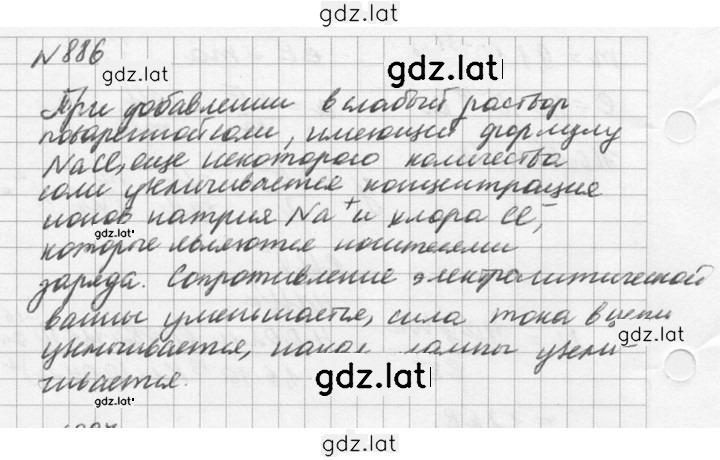 gdz.lat
N 886
gdz.lat
gdz.lat
При добавлении в слабый раствор
поваренной соли, имеющий формулу
NaCl, еще некоторого количества
соли увеличивается концентрация
ионов натрия Na⁺ и хлора Cl⁻,
gdz.lat
которые являются носителями
заряда. Сопротивление электролитической
ванны уменьшается, сила тока в цепи
gdz.lat
увеличивается, накал лампы увели-
gdz.lat
чивается.
gdz.lat
gdz.lat